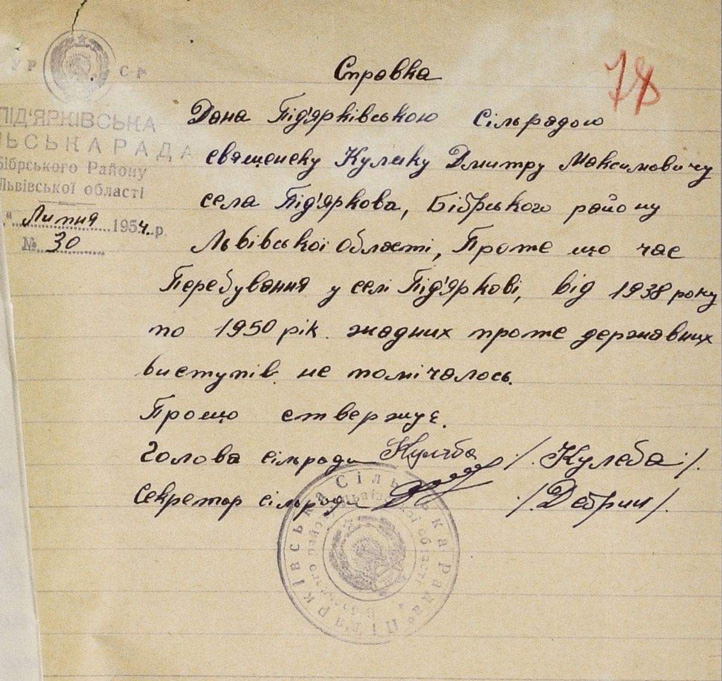 УР СР
Справка
78
ПІД'ЯРКІВСЬКА
ЛЬСЬКА РАДА
Бібрського Району
Львівської області
" Липня 1954 р.
№ 30
Дана Під'ярківською Сільрадою
священеку Кулику Дмитру Максимовичу
села Під'яркова, Бібрського району
Львівської Області, Проте що час
Перебування у селі Під'яркові, від 1938 року
по 1950 рік. жадних проте державних
виступів не помічалось.
Прощо стверджує.
Голова сільради Кулеба /. Кулеба /.
Секретар сільради /. Дебрин /.
Підярківська Сільська рада